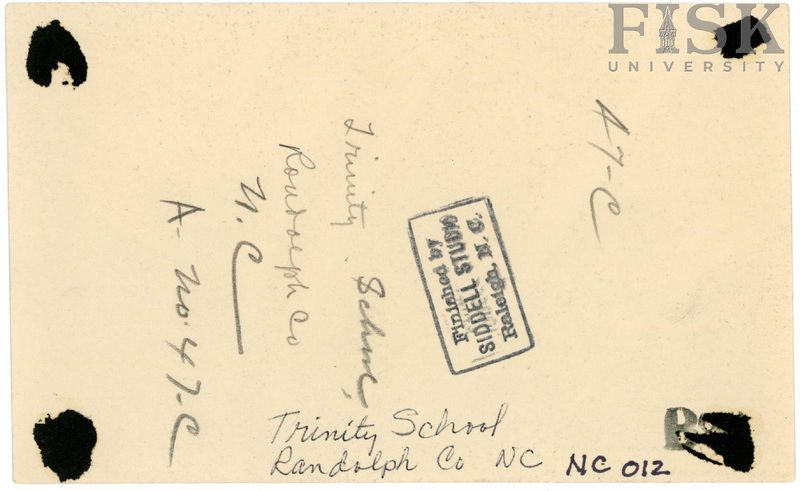 FISK
UNIVERSITY
47-C
Trinity School,
Randolph Co
N.C
A- No. 47-C
Finished by
SIDDELL STUDIO
Raleigh, N. C.
Trinity School
Randolph Co NC
NC 012